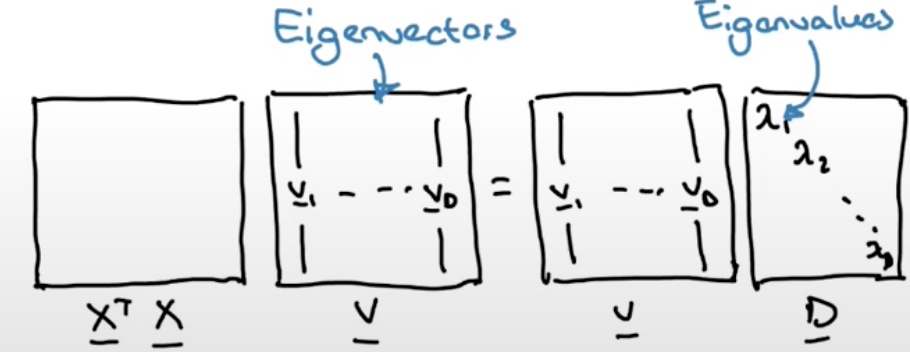 Eigenvectors
Eigenvalues
v₁ - - - - v_D = v₁ - - - - v_D
λ₁
λ₂
⋱
λ_D
Xᵀ X V V D